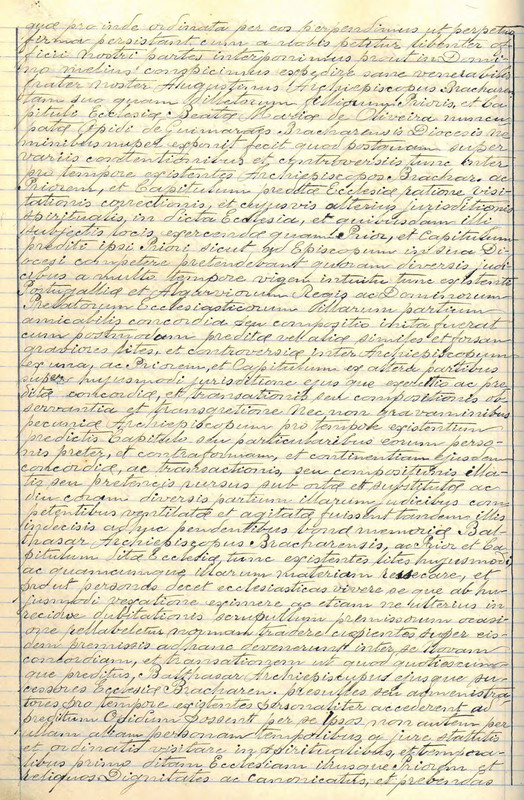 quæ pro inde ordinata per eos perpendimus ut perpetuo
firma persistant cum a nobis petitur libenter of-
ficii nostri partes interponimus prout in Domi-
no melius conspicimus expedire sane venerabilis
frater noster Augustinus Archiepiscopus Bracharen
tam suo quam dilectorum filiorum Prioris, et Ca-
pituli Ecclesiæ Beatæ Mariæ de Oliveira nuncu-
patæ Opidi de Guimarães Bracharensis Diocesis no-
minibus nuper exponit fecit quod postquam super
variis contentionibus et controversiis tunc inter
pro tempore existentes Archiepiscopos Brachar. ac
Priorem, et Capitulum preditæ Ecclesiæ ratione visi-
tationis correctionis, et cujusvis alterius jurisditionis
spiritualis, in dicta Ecclesia, et quibusdam illi
subjectis locis, exercendæ quam Prior, et Capitulum
prediti ipsi Priori dicut ad Episcopum in sua Di-
ocesi competere pretendebant quoram diversis judi-
cibus a multo tempore vigen intuitu tunc existentis
Portugalliæ et Algarviorum Regis ac Dominorum
Prelatorum Ecclesiasticorum illarum partium
amicabilis concordia seu compositio inita fuerat
cum postmodum preditæ vel aliæ similes et forsan
graviores lites, et controversiæ inter Archiepiscopum
ex una, ac Priorem, et Capitulum ex altera partibus
super hujusmodi jurisditione ejus que exercitio ac pre-
ditæ concordiæ, et transationis seu compositionis ob-
servantia et transgretione nec non gravaminibus
pecuniæ Archiepiscopum pro tempore existentium
predictis Capitulo seu particularibus eorum perso-
nis preter, et contraformam, et continentiam ejusdem
concordiæ, ac transactionis, seu compositionis illa-
tis seu pretencis rursus sub ortæ et substitutæ ac
diu coram diversis partium illarum judicibus com-
petentibus ventilatæ et agitatæ fuissent tandem illis
indecisis adhuc pendentibus bonæ memoriæ Bal-
thasar Archiepiscopus Bracharensis, ac Prior et Ca-
pitulum ditæ Ecclesiæ tunc existentes lites hujusmodi
ac quamcumque illarum materiam resecare, et
prout personas decet ecclesiasticas vivere se que ab hu-
jusmodi vexatione eximere ac etiam ne ulterius in
recidivæ dubitationis scrupullum premissorum ocasi-
one rellabeletur normam tradere cupientes super eis-
dem premissis ad hanc devenerunt inter se novam
concordiam, et transationem ut quod quotiescum-
que preditus, Balthasar Archiepiscupus ejusque su-
cessores Ecclesiæ Bracharen. presules seu administra-
tores pro tempore existentes personaliter accederent ad
preditum Opidum possent per se ipsos non autem per
ullam aliam personam temporibus a jure statutis
et ordinatis visitare in spiritualibus, et tempora-
libus primo ditam Ecclesiam illiusque Priorem et
reliquos Dignitates ac canonicatus, et prebendas